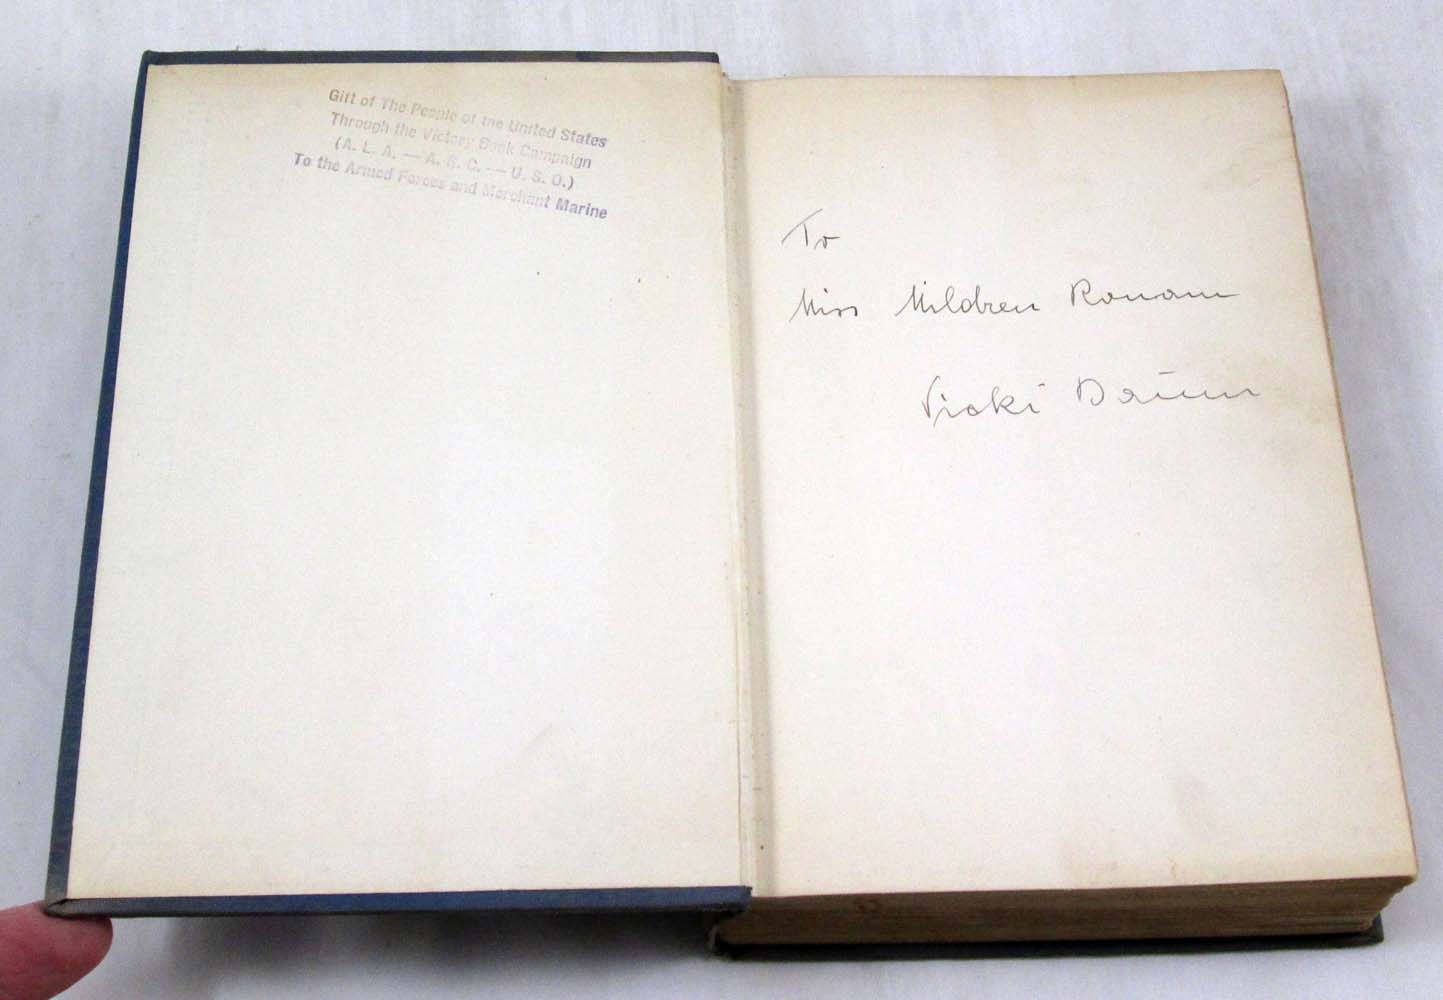 Gift of The People of the United States
Through the Victory Book Campaign
(A. L. A. — A. R. C. — U. S. O.)
To the Armed Forces and Merchant Marine
To
Miss Mildren Ronam
Vicki Baum